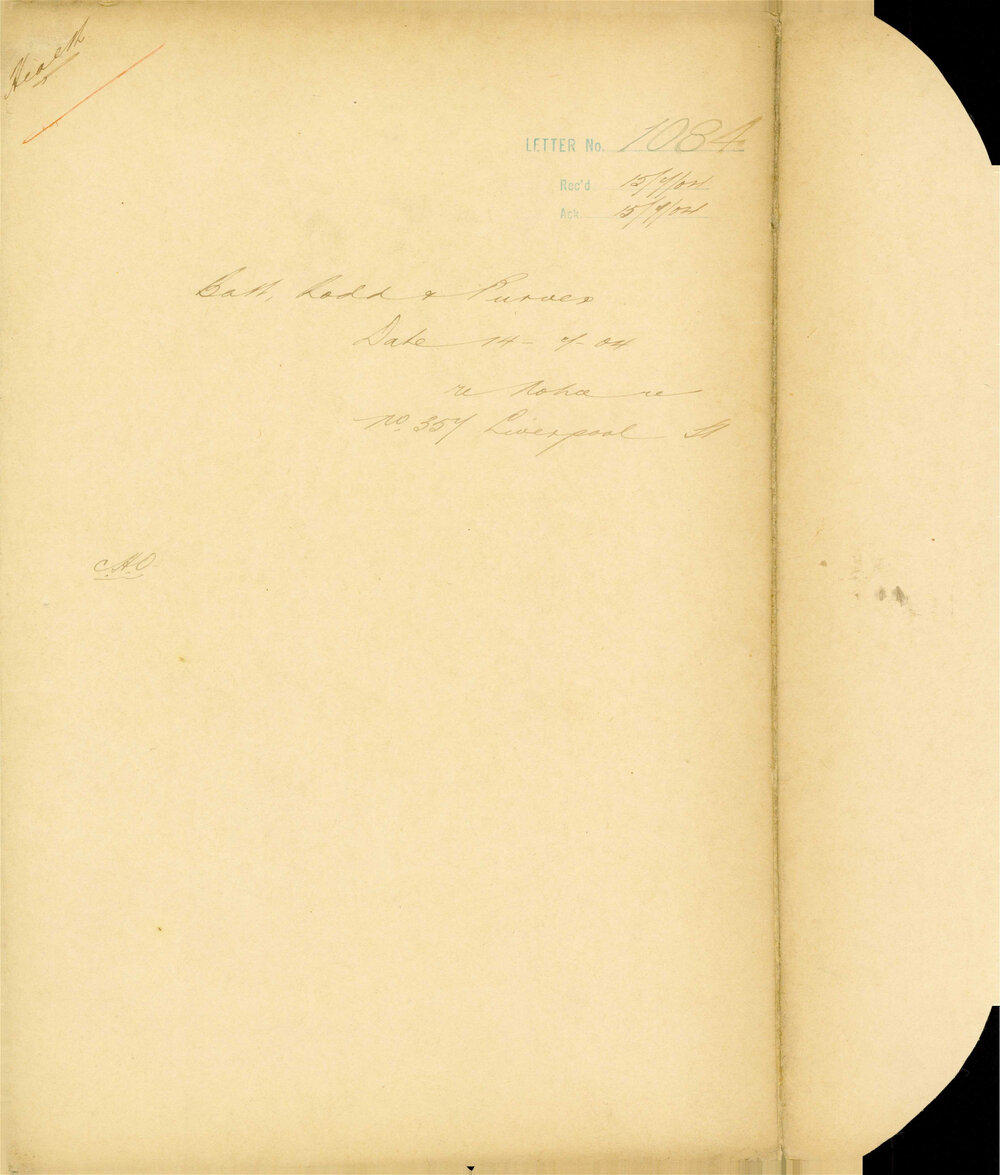 Health
LETTER No. 1084
Rec'd 15/7/04
Ack. 15/7/04
Batt, Rodd & Purves
Date 14-7-04
re Notice re
No. 357 Liverpool St
C.H.O.